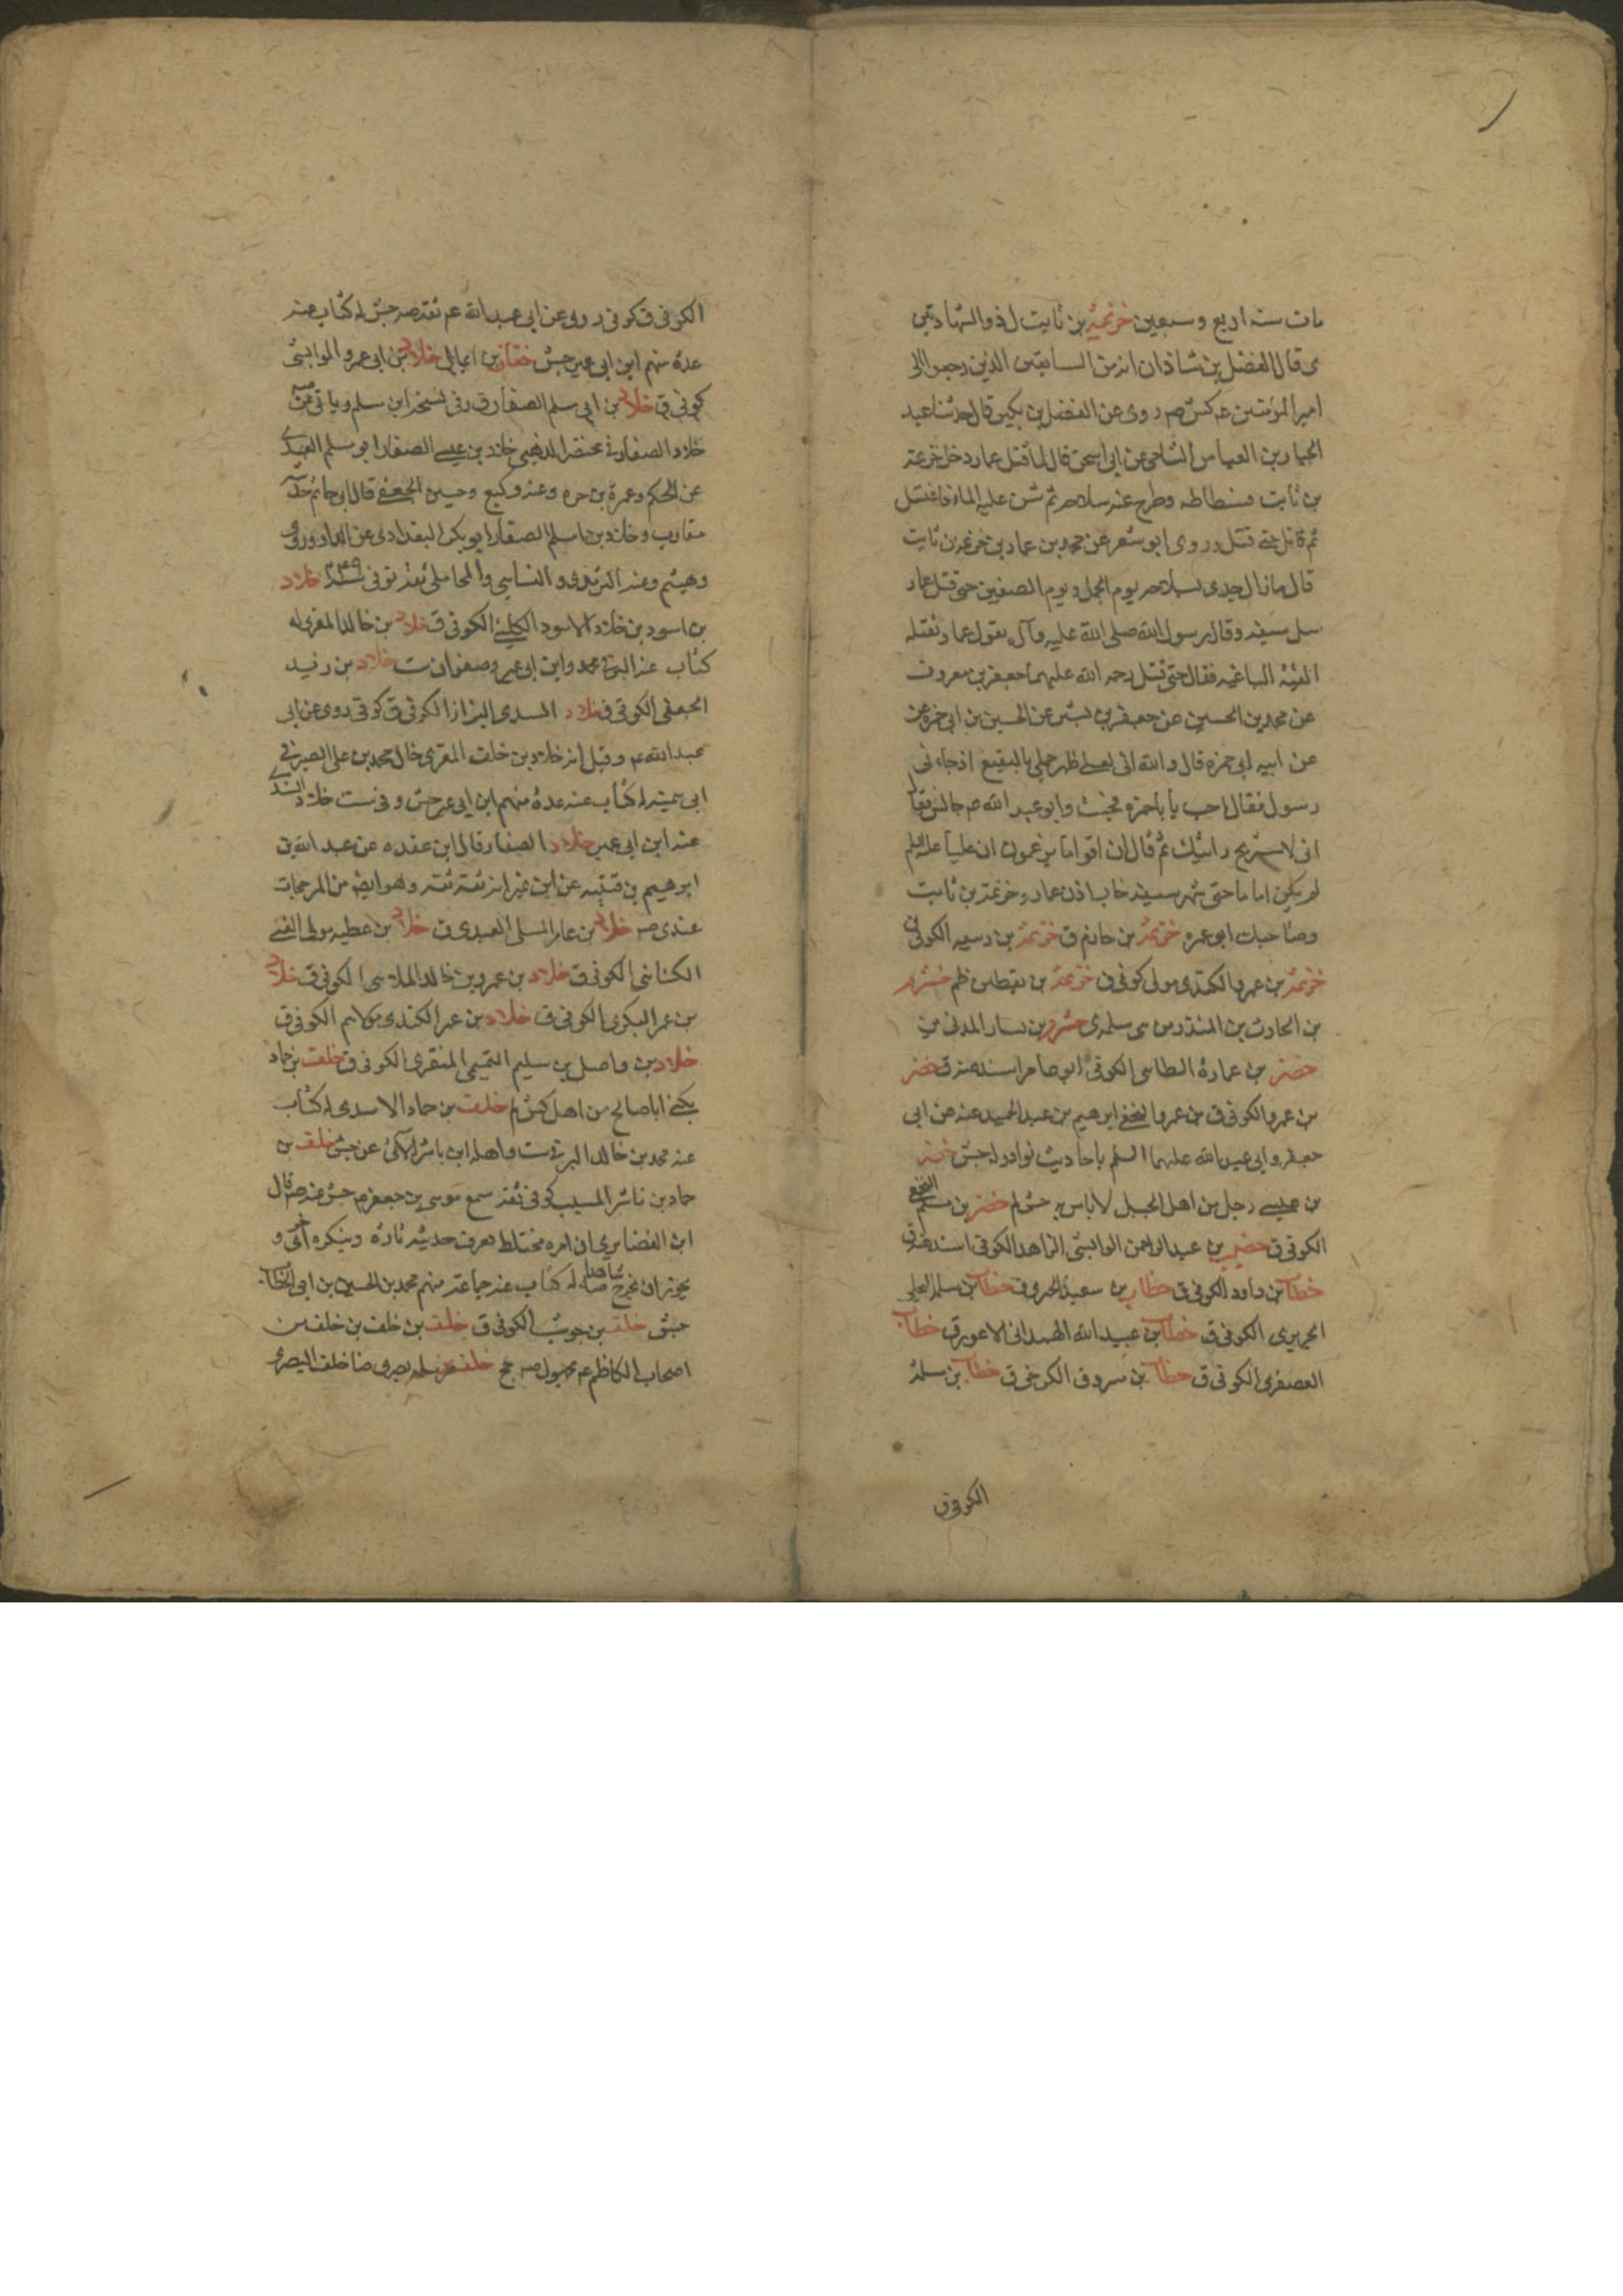 مات سنه اربع وسبعين خزيمة بن ثابت ل ذو الشهادتين
ى قال الفضل بن شاذان انه من السابقين الذين رجعوا الى
امير المؤمنين عم كش صه روى عن الفضل بن دكين قال حدثنا عبد
الجبار بن العباس الشامى عن ابى اسحق قال لما قتل عمار دخل خزيمة
بن ثابت فسطاطه وطرح عنه سلاحه ثم شن عليه الماء فاغتسل
ثم قاتل حتى قتل وروى ابو معشر عن محمد بن عمار بن خزيمة بن ثابت
قال ما زال جدى بسلاحه يوم الجمل ويوم الصفين حتى قتل عمار
سل سيفه وقال رسول الله صلى الله عليه وآله يقول عمار تقتله
الفئة الباغيه فقاتل حتى قتل رحمه الله عليهما جعفر بن معروف
عن محمد بن الحسين عن جعفر بن بشير عن الحسين بن ابى حمزه عن
عن ابيه ابى حمزه قال والله انى لعلى ظهر جملى بالبقيع اذ جاءنى
رسول فقال اجب يا با حمزه فجئت وابو عبد الله صه جالس فقال
انى لاستريح اذا رأيتك ثم قال ان اقواما يزعمون ان عليا عليه السلم
لم يكن اماما حتى شهر سيفه خاب اذن عمار وخزيمة بن ثابت
وصاحبك ابو عمره خزيمة بن حازم ق خزيمة بن ربيعه الكوفى
خزيمة بن عمرو الكندى مولى كوفى ق خزيمة بن يقطين ظم خشرم
بن الحارث بن المنذر من بنى سلمه ى خشرم بن يسار المدنى ين
خضر بن عمارة الطائى الكوفى ابو عامر اسند عنه ق خضر
بن عمرو الكوفى ق بن عمرو النخعى ابرهيم بن عبد الحميد عنه عن ابى
جعفر وابى عبد الله عليهما السلم باحاديث نوادر له جش خضر
بن عيسى رجل من اهل الجبل لا باس به جش لم خضر بن مسلم النخعى
الكوفى ق خضير بن عبد الرحمن الوابشى الزاهد الكوفى اسند عنه ق
خطاب بن داود الكوفى ق خطاب بن سعيد الحروق خطاب بن سلمه البجلى
الجريرى الكوفى ق خطاب بن عبيد الله الهمدانى الاعور ق خطاب
العصفرى الكوفى ق خطاب بن مسروق الكرخى ق خطاب بن سلمة
الكوفى ق
الكوفى ق كوفى روى عن ابى عبد الله عم ثقه صه جش له كتاب عنه
عده منهم ابن ابى عمير جش خفاف بن ايما ل خلاد بن ابى عمرو الوابشى
كوفى ق خلاد بن ابى مسلم الصفار ق وفى نسخه ابن سلم وياتى عن
خلاد الصفار فى مختصر الذهبى خلاد بن عيسى الصفار ابو مسلم العبدى
عن الحكم وعمرة بن مره وعنه وكيع وحسين الجعفى قال ابو حاتم حديثه
متقارب وخلاد بن اسلم الصفار ابو بكر البغدادى عن الداوردى
وهشيم وعنه الترمذى والنسايى والمحاملى ثقه توفى سنه ٢٤٩ خلاد
بن اسود بن خلاد الاسود الكلبى الكوفى ق خلاد بن خالد المقرى له
كتاب عنه البرقى محمد وابن ابى عمير وصفوان ست خلاد بن رفيد
الجعفى الكوفى ق خلاد السدى البزاز الكوفى ق كوفى روى عن ابى
عبد الله عم وقيل انه خلاد بن خلف المقرى خال محمد بن على الصيرفى
ابى سمينه له كتاب عنه عدة منهم ابن ابى عمير جش وفى ست خلاد السندى
عنه ابن ابى عمير خلاد الصفار قال ابن عقده عن عبد الله بن
ابرهيم بن قتيبه عن ابن نمير انه ثقه ثقه وهو ايضا من المرجحات
عندى صه خلاد بن عامر المسلى العبدى ق خلاد بن عطيه مولى الغنى
الكنانى الكوفى ق خلاد بن عمرو بن خالد الملائى الكوفى ق خلاد
بن عمر البكرى الكوفى ق خلاد بن عمر الكندى مولاهم الكوفى ق
خلاد بن واصل بن سليم التميمى المنقرى الكوفى ق خلف بن حماد
يكنى ابا صالح من اهل كش لم خلف بن حماد الاسدى له كتاب
عنه محمد بن خالد البرقى ست خلف بن
حماد بن ناشر المسيب كوفى ثقه سمع موسى بن جعفر عم جش صه قال
ابن الغضايرى ان امره مختلط يعرف حديثه تارة وينكره اخرى و
يجوز ان يخرج شاهدا له كتاب عنه جماعة منهم محمد بن الحسين بن ابى الخطاب
جش خلف بن حوشب الكوفى ق خلف بن خلف بن خلف من
اصحاب الكاظم عم مجهول صه جخ خلف بن سلمه بصرى ضا خلف البصرى